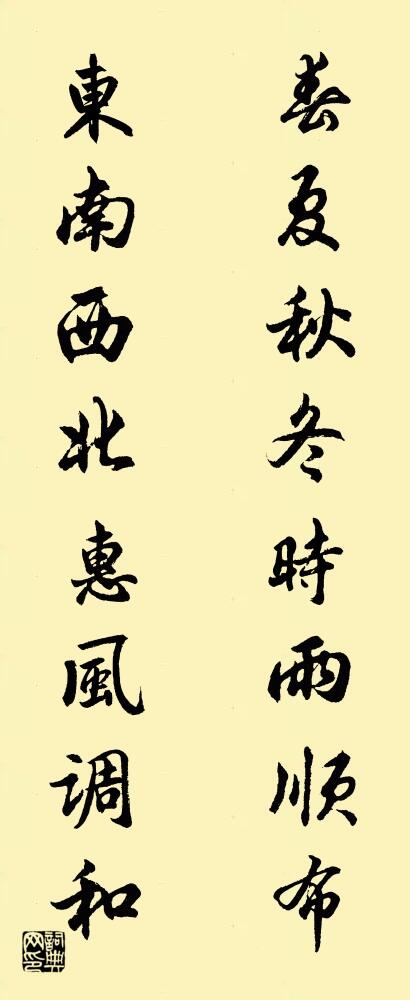 春夏秋冬時雨順布
東南西北惠風調和
詞典网印